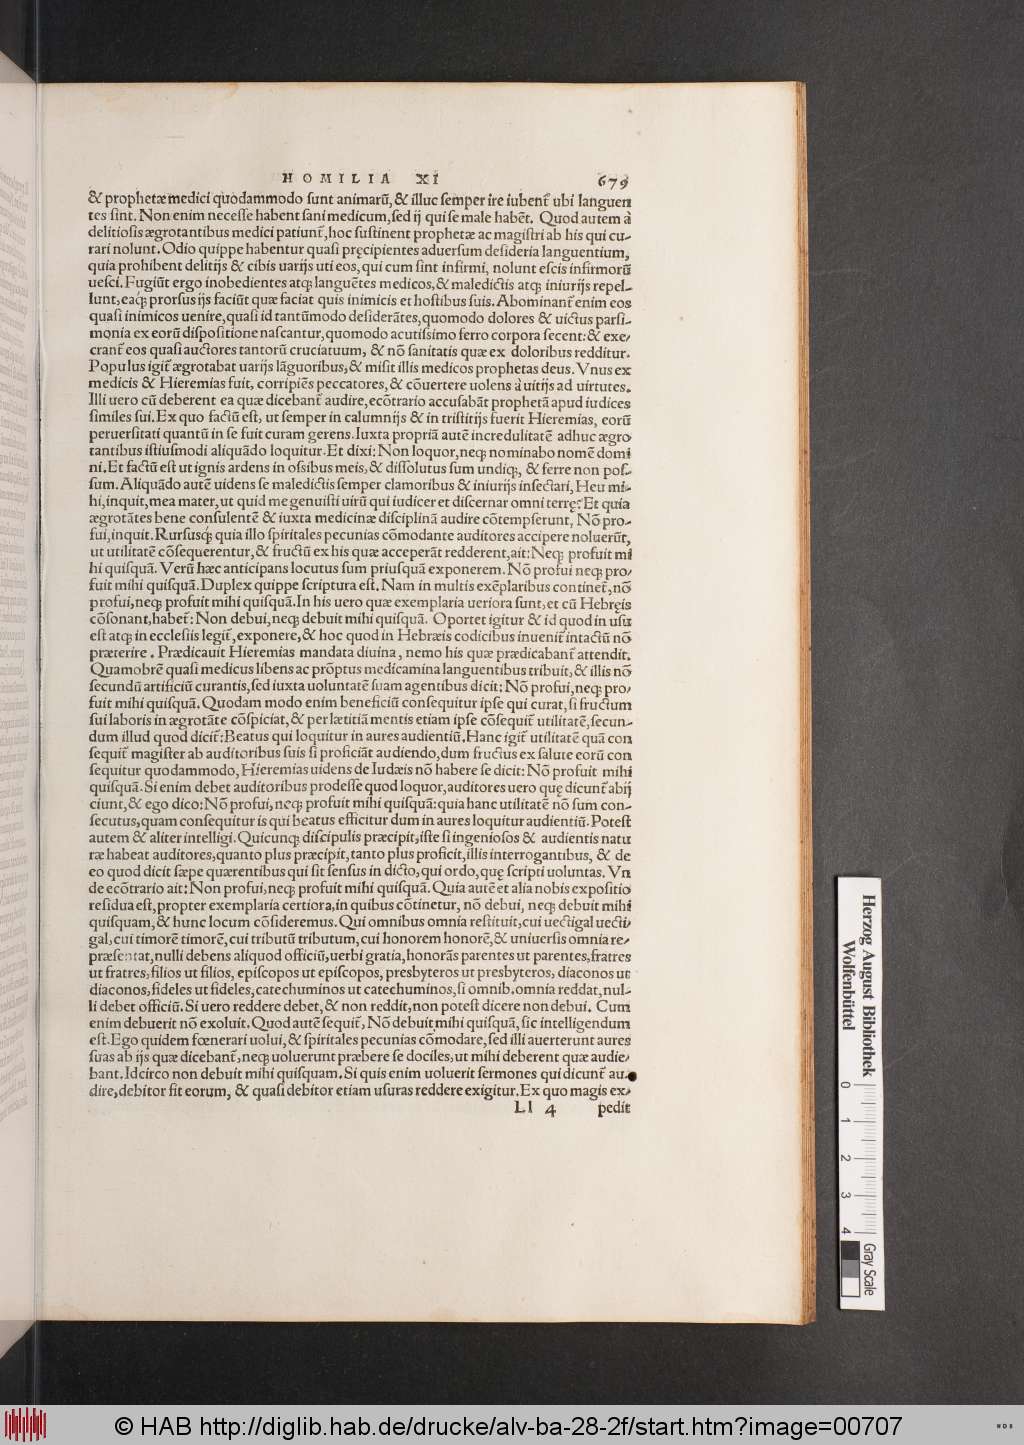 HOMILIA XI 679
& prophetæ medici quodammodo sunt animarū, & illuc semper ire iubent᷑ ubi languen
tes sint. Non enim necesse habent sani medicum, sed ij qui se male habēt. Quod autem à
delitiosis ægrotantibus medici patiunt᷑, hoc sustinent prophetæ ac magistri ab his qui cu-
rari nolunt. Odio quippe habentur quasi pręcipientes aduersum desideria languentium,
quia prohibent delitijs & cibis uarijs uti eos, qui cum sint infirmi, nolunt escis infirmorū
uesci. Fugiūt ergo inobedientes atq; languētes medicos, & maledictis atq; iniurijs repel-
lunt, eaq́; prorsus ijs faciūt quæ faciat quis inimicis et hostibus suis. Abominant᷑ enim eos
quasi inimicos uenire, quasi id tantūmodo desiderātes, quomodo dolores & uictus parsi-
monia ex eorū dispositione nascantur, quomodo acutissimo ferro corpora secent: & exe-
crant᷑ eos quasi auctores tantorū cruciatuum, & nō sanitatis quæ ex doloribus redditur.
Populus igit᷑ ægrotabat uarijs lāguoribus, & misit illis medicos prophetas deus. Vnus ex
medicis & Hieremias fuit, corripiēs peccatores, & cōuertere uolens à uitijs ad uirtutes.
Illi uero cū deberent ea quæ dicebant᷑ audire, ecōtrario accusabāt prophetā apud iudices
similes sui. Ex quo factū est, ut semper in calumnijs & in tristitijs fuerit Hieremias, eorū
peruersitati quantū in se fuit curam gerens. Iuxta propriā autē incredulitatē adhuc ægro
tantibus istiusmodi aliquādo loquitur. Et dixi: Non loquor, neq; nominabo nomē domi
ni. Et factū est ut ignis ardens in ossibus meis, & dissolutus sum undiq;, & ferre non pos-
sum. Aliquādo autē uidens se maledictis semper clamoribus & iniurijs insectari, Heu mi-
hi, inquit, mea mater, ut quid me genuisti uirū qui iudicer et discernar omni terrę? Et quia
ægrotātes bene consulentē & iuxta medicinæ disciplinā audire cōtempserunt, Nō pro-
fui, inquit. Rursusq́; quia illo spiritales pecunias cōmodante auditores accipere noluerūt,
ut utilitatē cōsequerentur, & fructū ex his quæ acceperāt redderent, ait: Neq; profuit mi
hi quisquā. Verū hæc anticipans locutus sum priusquā exponerem. Nō profui neq; pro-
fuit mihi quisquā. Duplex quippe scriptura est. Nam in multis exēplaribus continet᷑, nō
profui, neq; profuit mihi quisquā. In his uero quæ exemplaria ueriora sunt, et cū Hebręis
cōsonant, habet᷑: Non debui, neq; debuit mihi quisquā. Oportet igitur & id quod in usu
est atq; in ecclesiis legit᷑, exponere, & hoc quod in Hebræis codicibus inuenit᷑ intactū nō
præterire. Prædicauit Hieremias mandata diuina, nemo his quæ prædicabant᷑ attendit.
Quamobrē quasi medicus libens ac prōptus medicamina languentibus tribuit, & illis nō
secundū artificiū curantis, sed iuxta uoluntatē suam agentibus dicit: Nō profui, neq; pro-
fuit mihi quisquā. Quodam modo enim beneficiū consequitur ipse qui curat, si fructum
sui laboris in ægrotāte cōspiciat, & per lætitiā mentis etiam ipse cōsequit᷑ utilitatē, secun-
dum illud quod dicit᷑: Beatus qui loquitur in aures audientiū. Hanc igit᷑ utilitatē quā con
sequit᷑ magister ab auditoribus suis si proficiāt audiendo, dum fructus ex salute eorū con
sequitur quodammodo, Hieremias uidens de Iudæis nō habere se dicit: Nō profuit mihi
quisquā. Si enim debet auditoribus prodesse quod loquor, auditores uero quę dicunt᷑ abij
ciunt, & ego dico: Nō profui, neq; profuit mihi quisquā: quia hanc utilitatē nō sum con-
secutus, quam consequitur is qui beatus efficitur dum in aures loquitur audientiū. Potest
autem & aliter intelligi. Quicunq; discipulis præcipit, iste si ingeniosos & audientis natu
ræ habeat auditores, quanto plus præcipit, tanto plus proficit, illis interrogantibus, & de
eo quod dicit sæpe quærentibus qui sit sensus in dicto, qui ordo, quę scripti uoluntas. Vn
de ecōtrario ait: Non profui, neq; profuit mihi quisquā. Quia autē et alia nobis expositio
residua est, propter exemplaria certiora, in quibus cōtinetur, nō debui, neq; debuit mihi
quisquam, & hunc locum cōsideremus. Qui omnibus omnia restituit, cui uectigal uecti-
gal, cui timorē timorē, cui tributū tributum, cui honorem honorē, & uniuersis omnia re-
præsentat, nulli debens aliquod officiū, uerbi gratia, honorās parentes ut parentes, fratres
ut fratres, filios ut filios, episcopos ut episcopos, presbyteros ut presbyteros, diaconos ut
diaconos, fideles ut fideles, catechuminos ut catechuminos, si omnib. omnia reddat, nul-
li debet officiū. Si uero reddere debet, & non reddit, non potest dicere non debui. Cum
enim debuerit nō exoluit. Quod autē sequit᷑, Nō debuit mihi quisquā, sic intelligendum
est. Ego quidem fœnerari uolui, & spiritales pecunias cōmodare, sed illi auerterunt aures
suas ab ijs quæ dicebant᷑, neq; uoluerunt præbere se dociles, ut mihi deberent quæ audie-
bant. Idcirco non debuit mihi quisquam. Si quis enim uoluerit sermones qui dicunt᷑ au-
dire, debitor fit eorum, & quasi debitor etiam usuras reddere exigitur. Ex quo magis ex-
Ll 4 pedit
Herzog August Bibliothek
Wolfenbüttel
0 1 2 3 4
Gray Scale
© HAB http://diglib.hab.de/drucke/alv-ba-28-2f/start.htm?image=00707